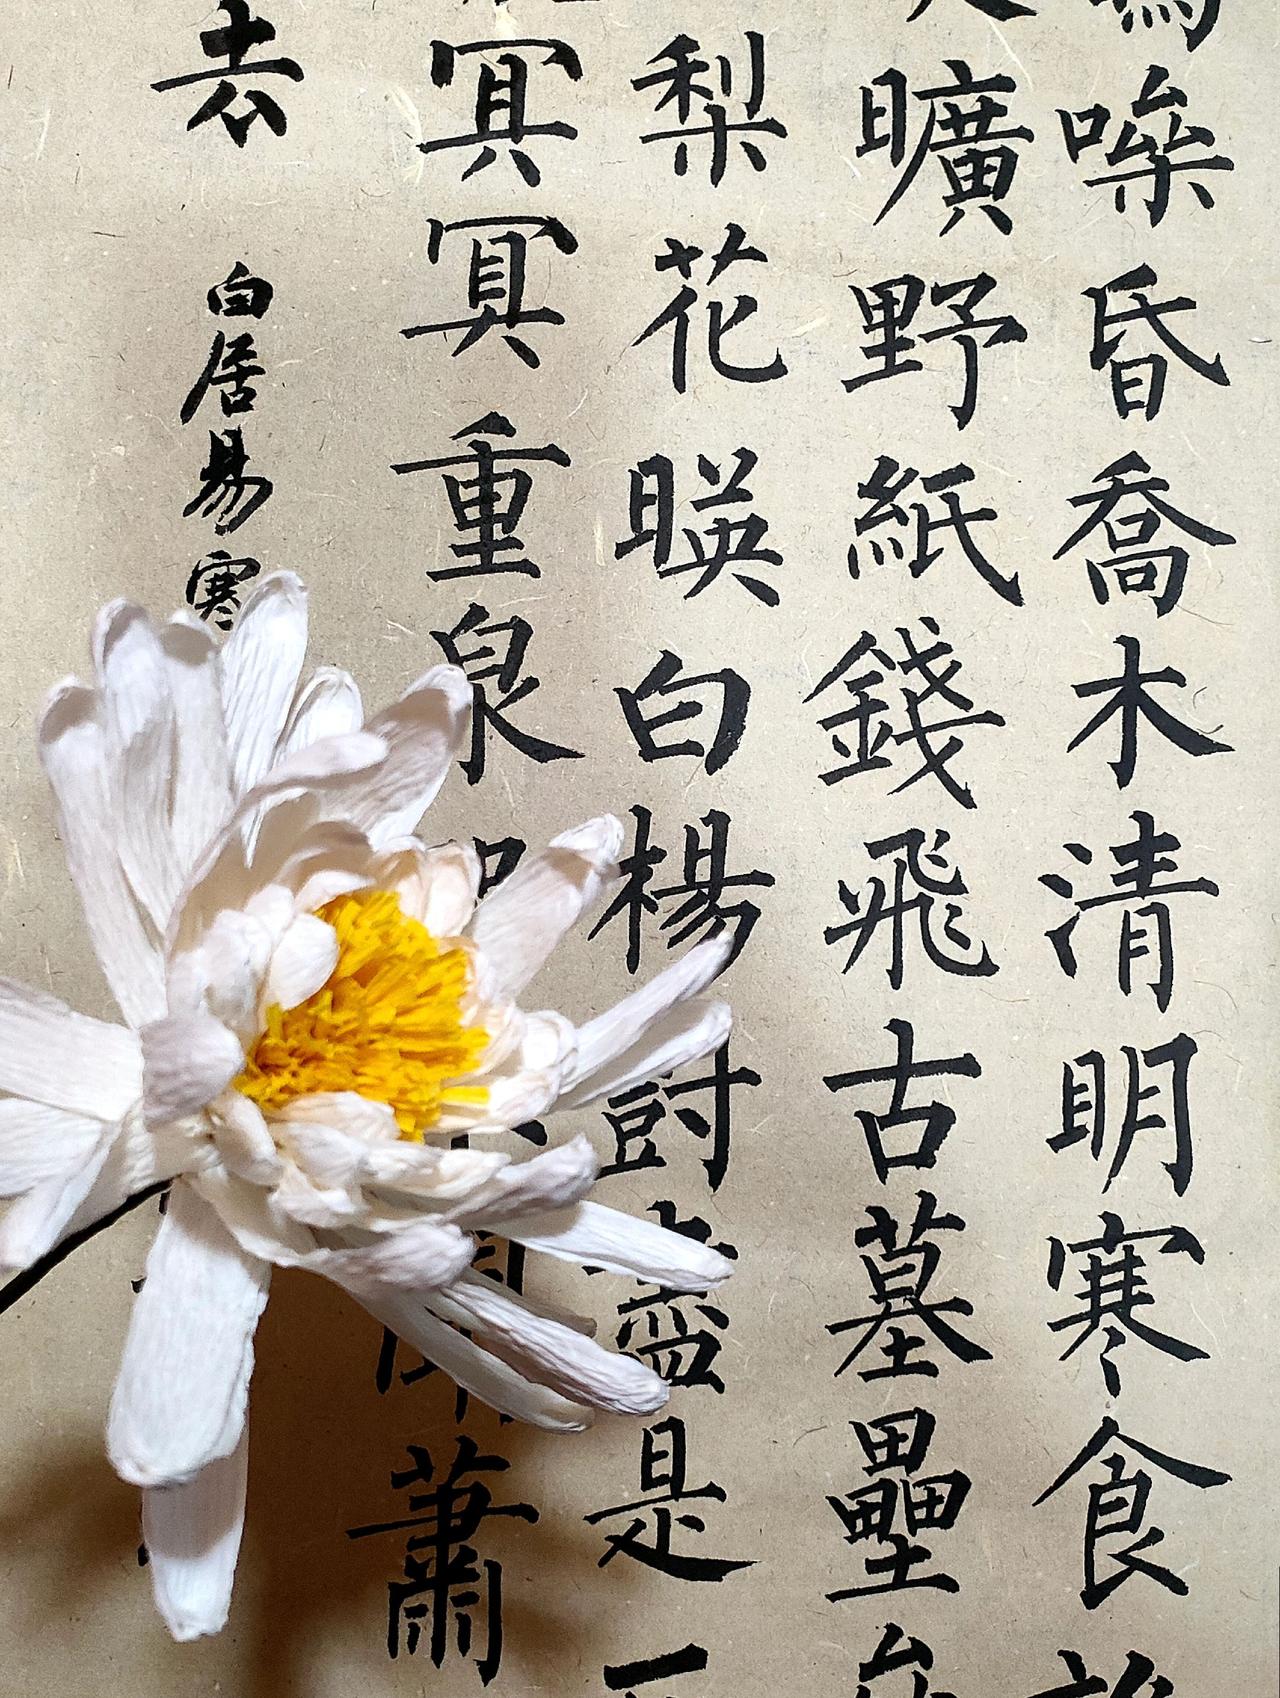 噪昏喬木清明寒食
曠野紙錢飛古墓壘
梨花暎白楊樹盡是
冥冥重泉蕭
去
白居易寒